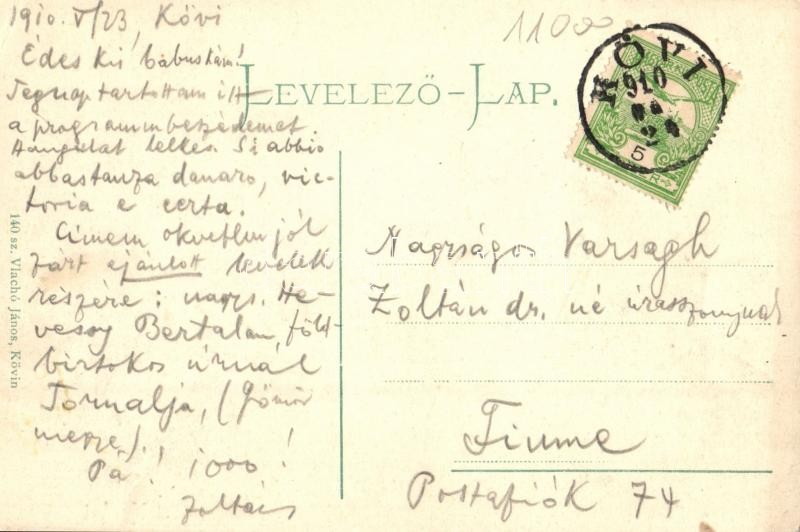 1910. V/23, Kövi
Édes kis babuskám!
Tegnap tartottam itt
a programmbeszédemet.
Hangulat lelkes. Si abbia
abbastanza danaro, vic-
toria e certa.
Címem okvetlen jól
zárt ajánlott levelek
részére: nagys. He-
vessy Bertalan, föld-
birtokos úrnál
Tornalja, (Gömör
megye).
Pá! 1000!
Zoltán
140 sz. Vlachó János, Kövin
LEVELEZŐ-LAP.
11000
KÖVI
910
24
5
Nagyságos Varsagh
Zoltán dr. né úrasszonynak
Fiume
Postafiók 74